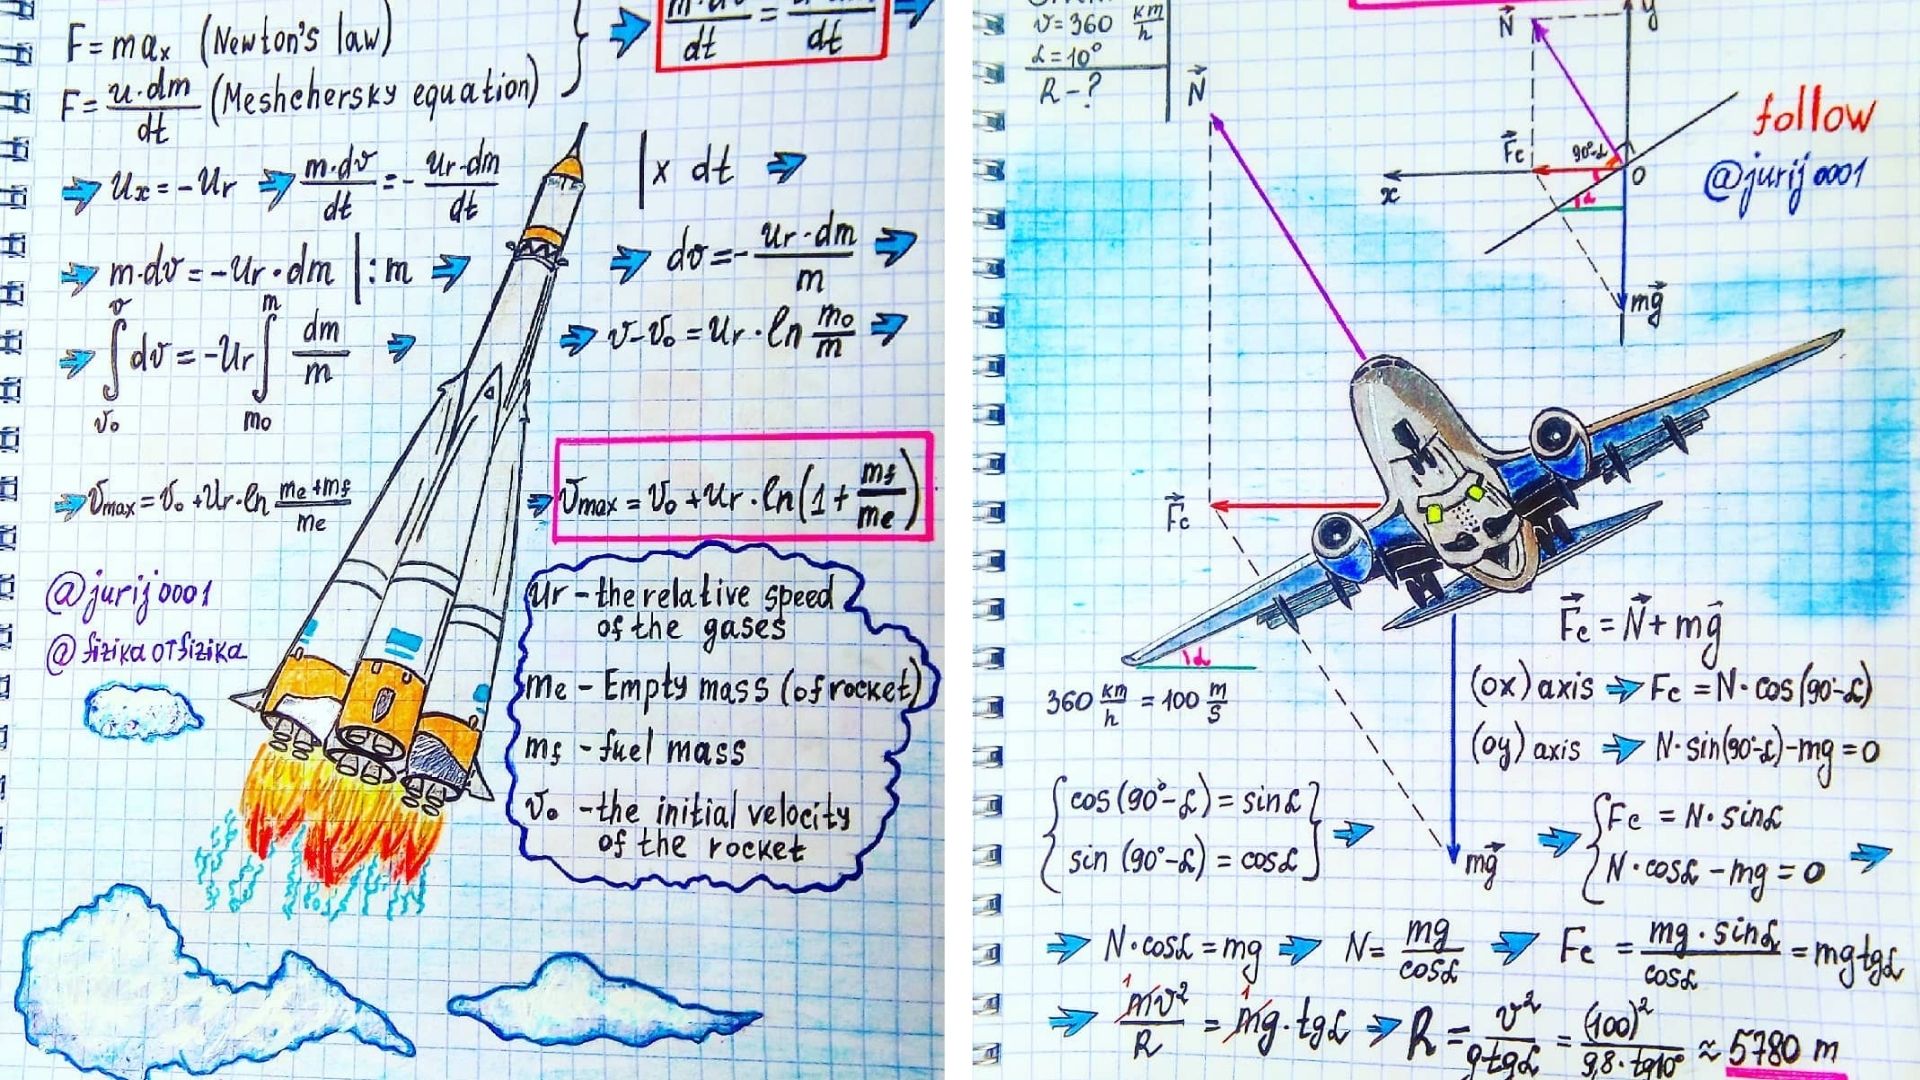 F = maₓ (Newton's law)
F = u·dm/dt (Meshchersky equation)
m·dv/dt = u·dm/dt
uₓ = -ur
m·dv/dt = - ur·dm/dt
| x dt
m·dv = -ur·dm | :m
dv = - ur·dm/m
∫ᵥ₀ᵛ dv = -ur ∫ₘ₀ᵐ dm/m
v-v₀ = ur·ln m₀/m
vmax = v₀ + ur·ln me+mf/me
vmax = v₀ + ur·ln(1 + mf/me)
@jurij0001
@fizikaOTfizika
ur - the relative speed
of the gases
me - Empty mass (of rocket)
mf - fuel mass
v₀ - the initial velocity
of the rocket
v = 360 km/h
α = 10°
R - ?
N
N
y
Fc
90°-α
O
x
α
mg
follow
@jurij0001
Fc
α
mg
360 km/h = 100 m/s
Fc = N + mg
(ox) axis Fc = N·cos(90°-α)
(oy) axis N·sin(90°-α)-mg = 0
cos(90°-α) = sinα
sin(90°-α) = cosα
Fc = N·sinα
N·cosα - mg = 0
N·cosα = mg
N = mg/cosα
Fc = mg·sinα/cosα = mgtgα
1 1
mv²/R = mg·tgα
R = v²/gtgα = (100)²/9,8·tg10° ≈ 5780 m